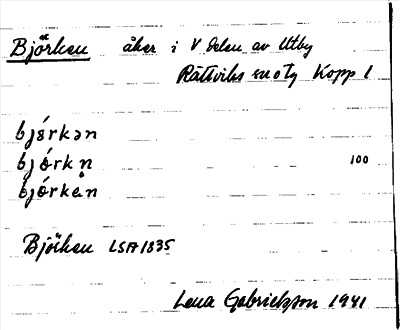 Björken åker i V delen av Utby
Rättviks sn o tg Kopp l
bjǿrkən
bjǿrkn̥ 100
bjǿrkęn
Björken LSA 1835
Lena Gabrielsson 1941